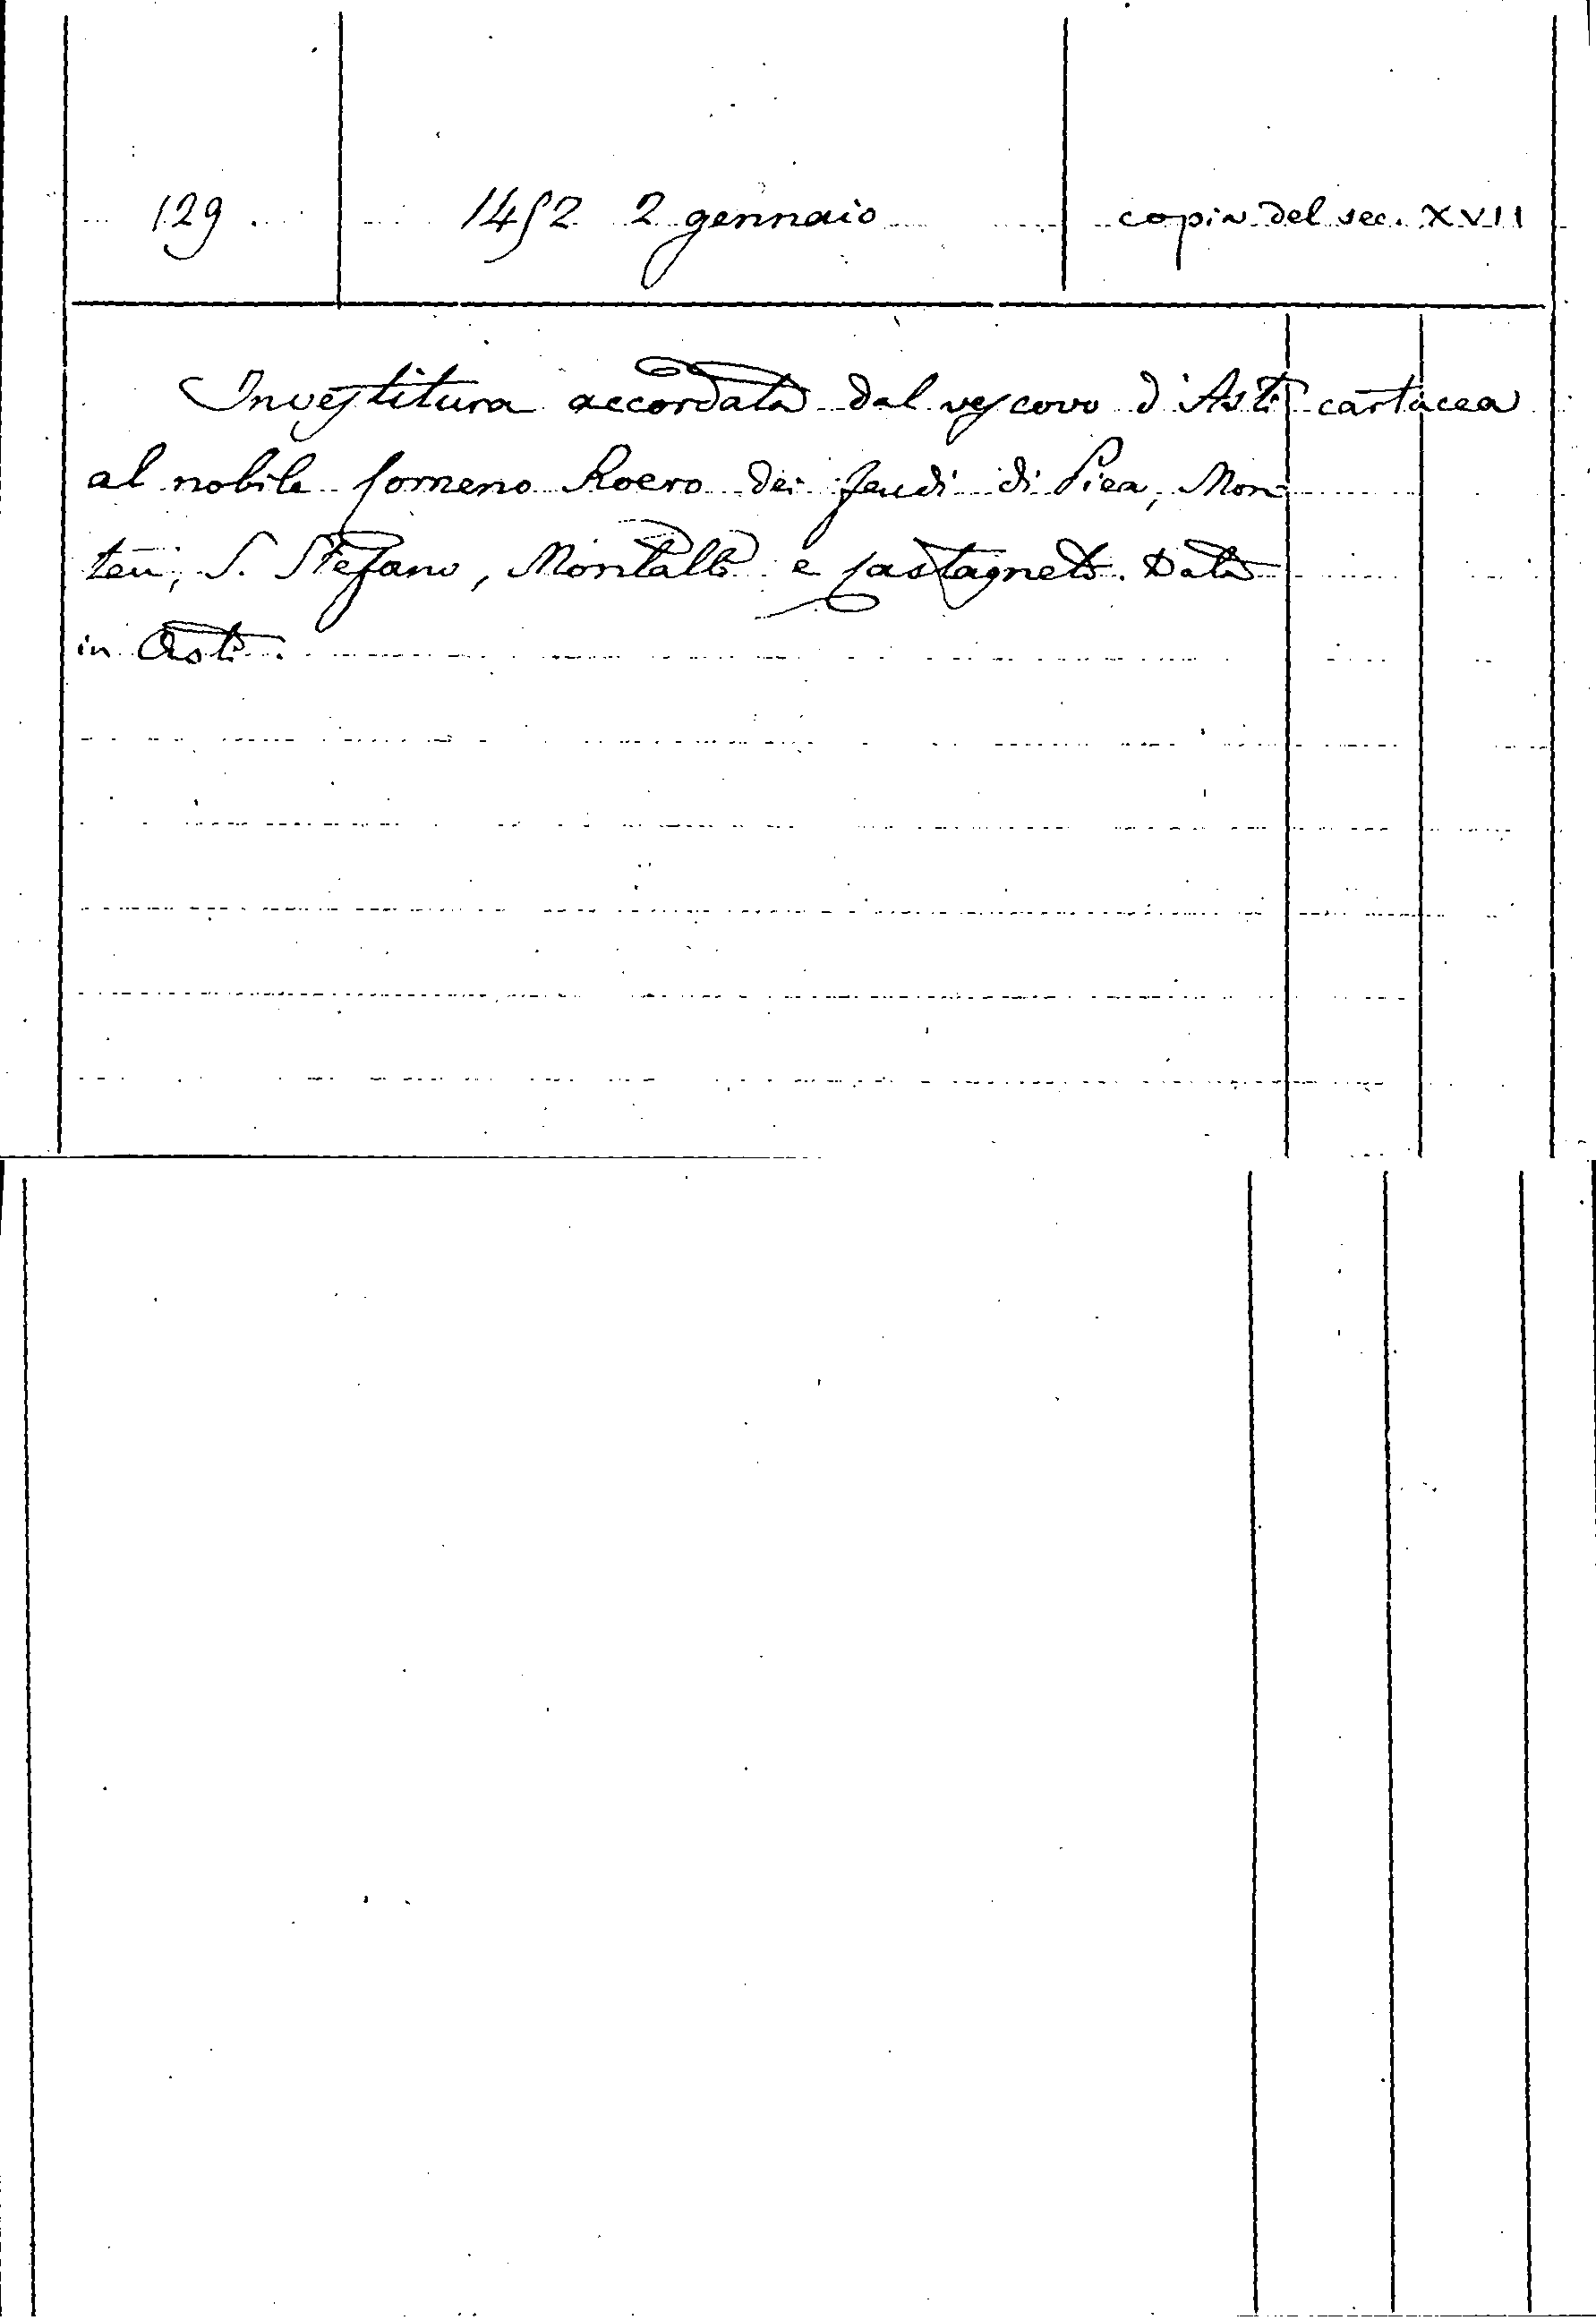 129 1452 2 gennaio copia del sec. XVII
Investitura accordata dal vescovo d'Asti cartacea
al nobile Comeno Roero dei feudi di Piea, Mon-
teu, S. Stefano, Montalto e Castagneto. Data
in Asti.